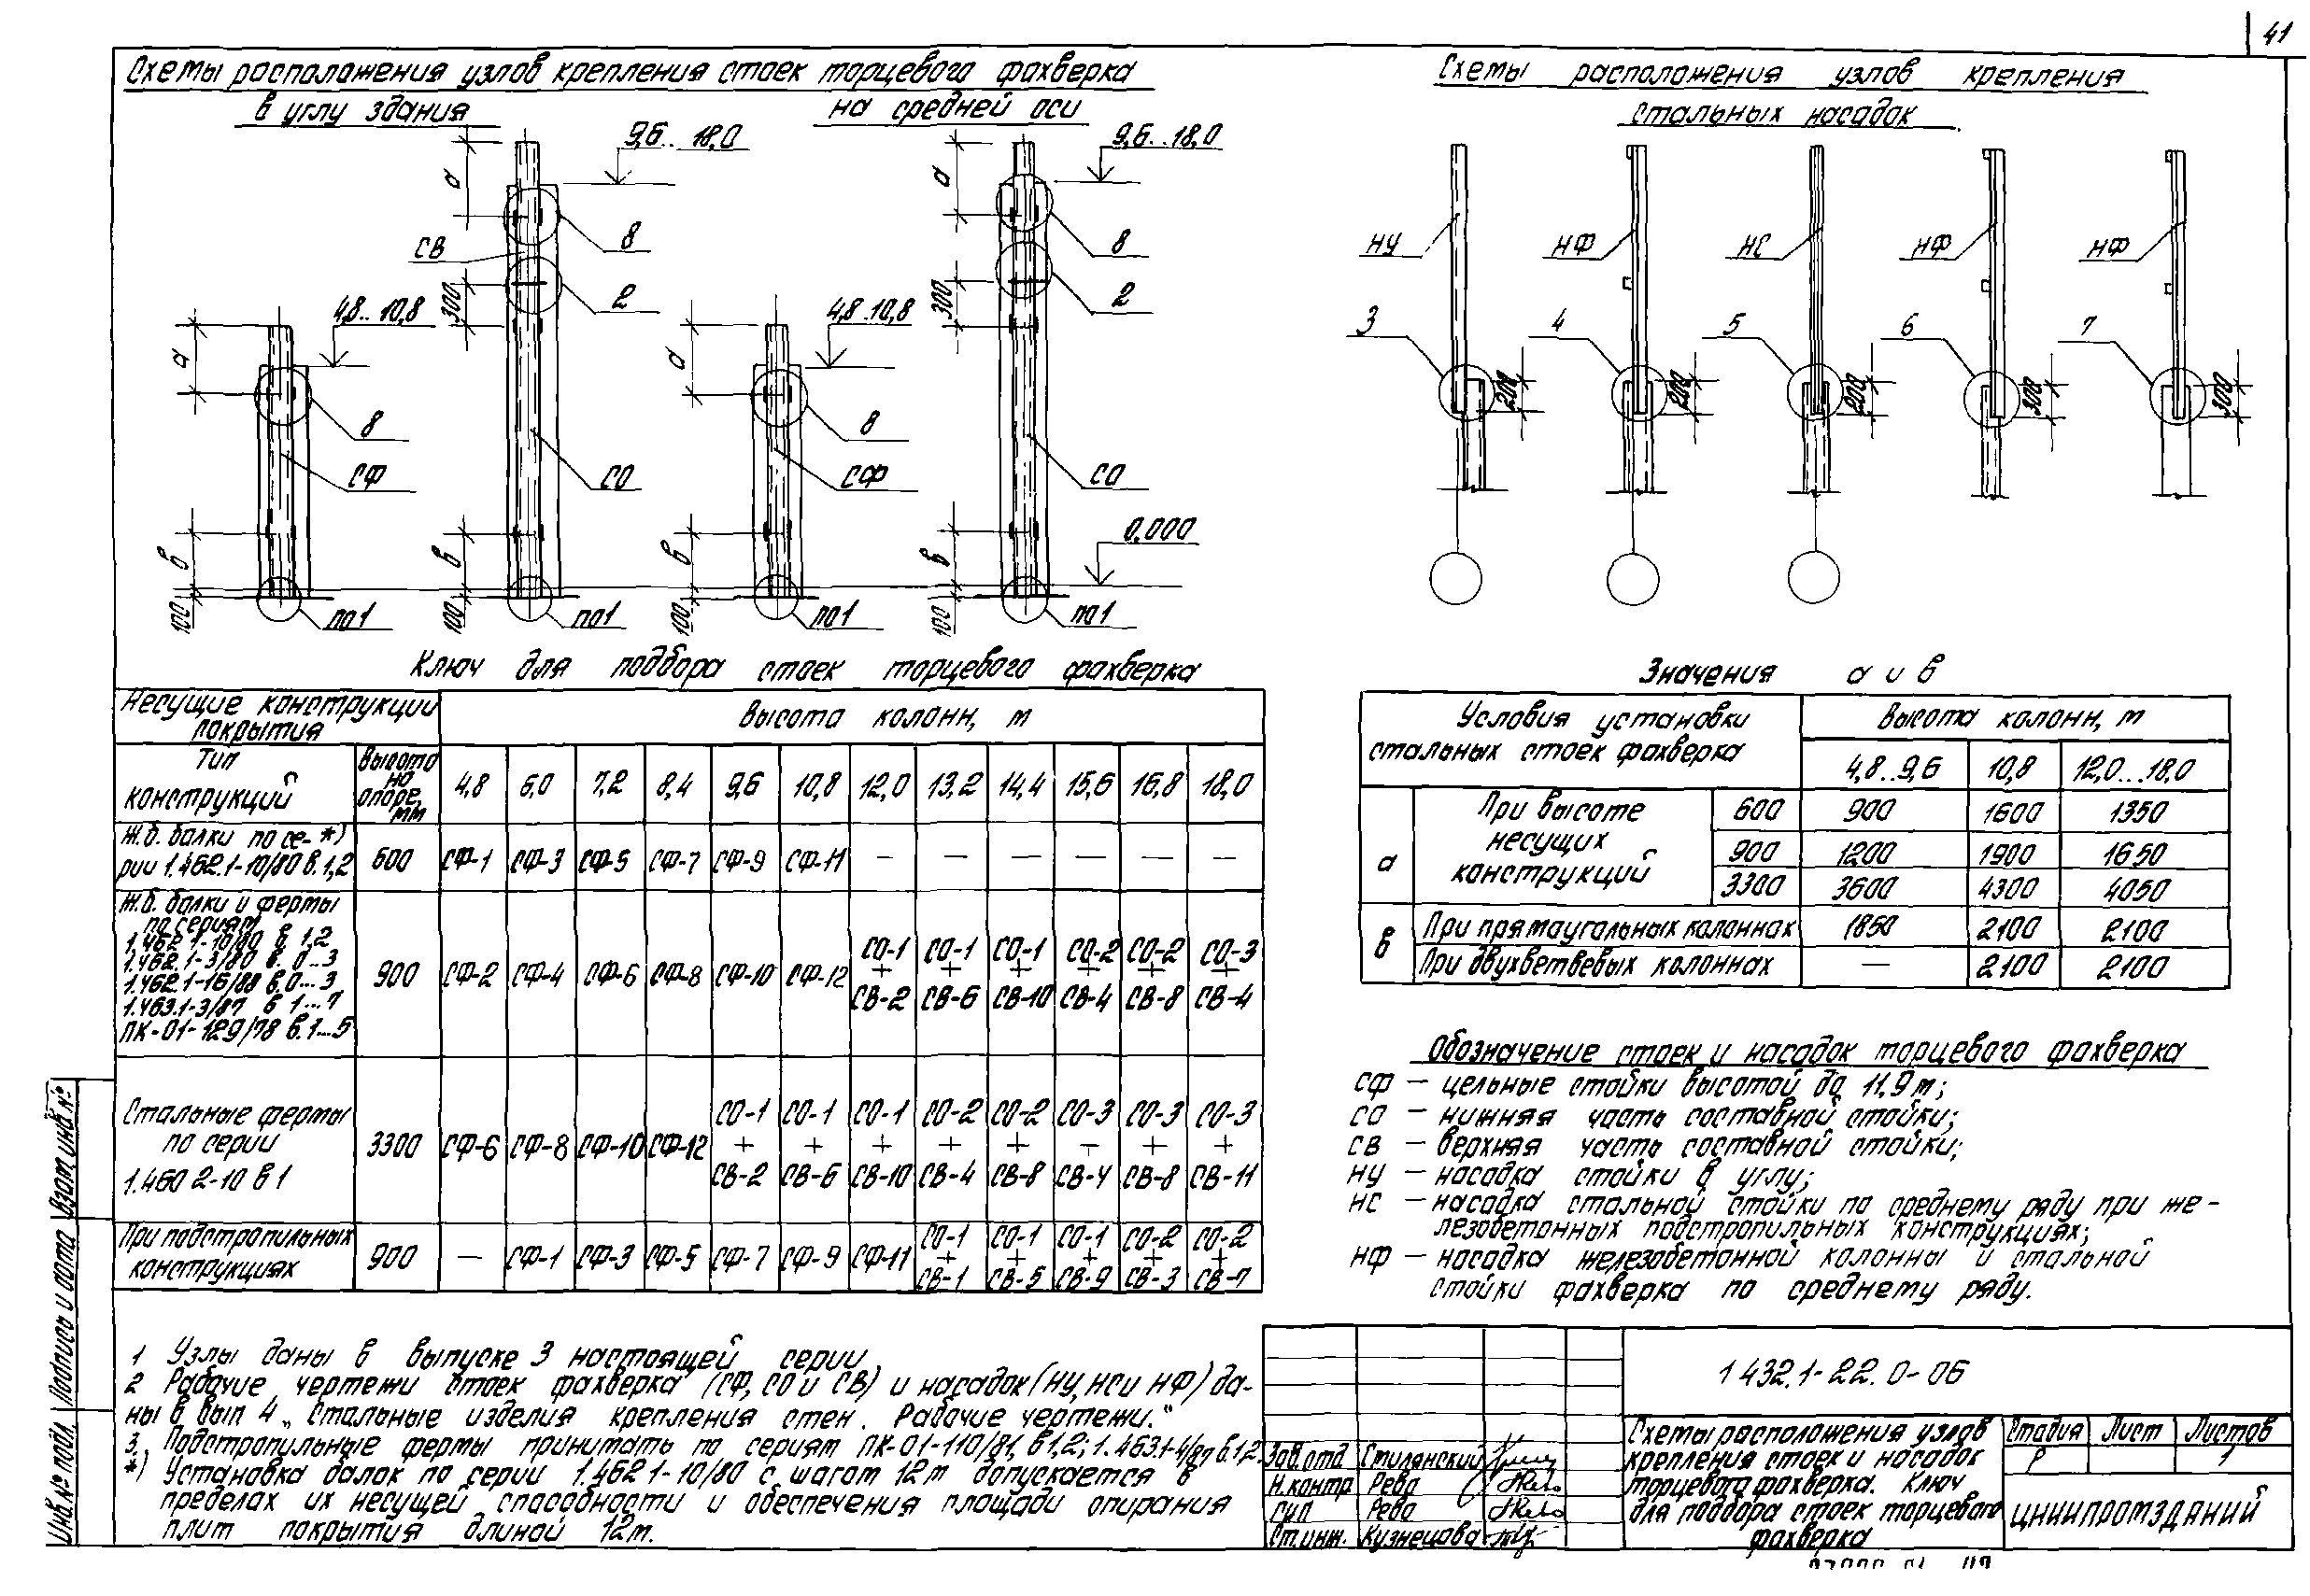 41
Схемы расположения узлов крепления стоек торцевого фахверка
в углу здания
на средней оси
Схемы расположения узлов крепления
стальных насадок
9,6..18,0
9,6..18,0
а
а
8
8
СВ
2
2
300
300
4,8..10,8
4,8..10,8
а
а
8
8
СФ
СО
СФ
СО
0,000
в
в
в
в
100
100
100
100
по1
по1
по1
по1
НУ
НФ
НС
НФ
НФ
3
4
5
6
7
200
200
200
300
300
Ключ для подбора стоек торцевого фахверка
Несущие конструкции покрытия
Высота колонн, м
Тип конструкций
Высота на опоре, мм
4,8 6,0 7,2 8,4 9,6 10,8 12,0 13,2 14,4 15,6 16,8 18,0
Ж.б. балки по се- *)
рии 1.462.1-10/80 в.1,2
600 СФ-1 СФ-3 СФ-5 СФ-7 СФ-9 СФ-11 — — — — — —
Ж.б. балки и фермы
по сериям
1.462.1-10/80 в. 1,2
1.462.1-3/80 в. 0...3
1.462.1-16/88 в.0...3
1.463.1-3/87 в 1...7
ПК-01-129/78 в.1...5
900 СФ-2 СФ-4 СФ-6 СФ-8 СФ-10 СФ-12
СО-1 СО-1 СО-1 СО-2 СО-2 СО-3
+ + + + + +
СВ-2 СВ-6 СВ-10 СВ-4 СВ-8 СВ-4
Стальные фермы
по серии
1.460 2-10 в 1
3300 СФ-6 СФ-8 СФ-10 СФ-12
СО-1 СО-1 СО-1 СО-2 СО-2 СО-3 СО-3 СО-3
+ + + + + – + +
СВ-2 СВ-6 СВ-10 СВ-4 СВ-8 СВ-4 СВ-8 СВ-11
При подстропильных
конструкциях
900 — СФ-1 СФ-3 СФ-5 СФ-7 СФ-9 СФ-11
СО-1 СО-1 СО-1 СО-2 СО-2
+ + + + +
СВ-1 СВ-5 СВ-9 СВ-3 СВ-7
Значения а и в
Условия установки
стальных стоек фахверка
Высота колонн, м
4,8..9,6 10,8 12,0...18,0
а
При высоте
несущих
конструкций
600 900 1600 1350
900 1200 1900 1650
3300 3600 4300 4050
в
При прямоугольных колоннах 1850 2100 2100
При двухветвевых колоннах — 2100 2100
Обозначение стоек и насадок торцевого фахверка
СФ — цельные стойки высотой до 11,9 м;
СО — нижняя часть составной стойки;
СВ — верхняя часть составной стойки;
НУ — насадка стойки в углу;
НС — насадка стальной стойки по среднему ряду при же-
лезобетонных подстропильных конструкциях;
НФ — насадка железобетонной колонны и стальной
стойки фахверка по среднему ряду.
1 Узлы даны в выпуске 3 настоящей серии
2 Рабочие чертежи стоек фахверка (СФ, СО и СВ) и насадок (НУ, НС и НФ) да-
ны в вып 4 „Стальные изделия крепления стен. Рабочие чертежи."
3. Подстропильные фермы принимать по сериям ПК-01-110/81, в1,2; 1.463.1-4/87 в.1,2
*) Установка балок по серии 1.462 1-10/80 с шагом 12м допускается в
пределах их несущей способности и обеспечения площади опирания
плит покрытия длиной 12м.
Инв.№ подл. Подпись и дата Взам. инв.№
1 432.1-22.0-06
Зав.отд Стилянский
Н.контр Рева
ГИП Рева
Ст.инж. Кузнецова
Схемы расположения узлов
крепления стоек и насадок
торцевого фахверка. Ключ
для подбора стоек торцевого
фахверка
Стадия Лист Листов
Р 1
ЦНИИПРОМЗДАНИЙ